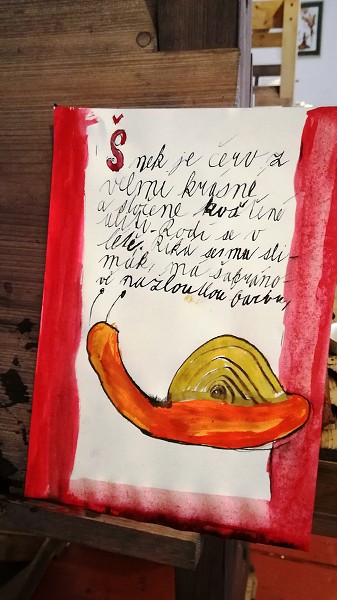 Šnek je červ z
velmi krásné
a složené kostěné
ulity. Rodí se v
létě. Říká se mu sli-
mák, má šafráno-
vě nažloutlou barvu,